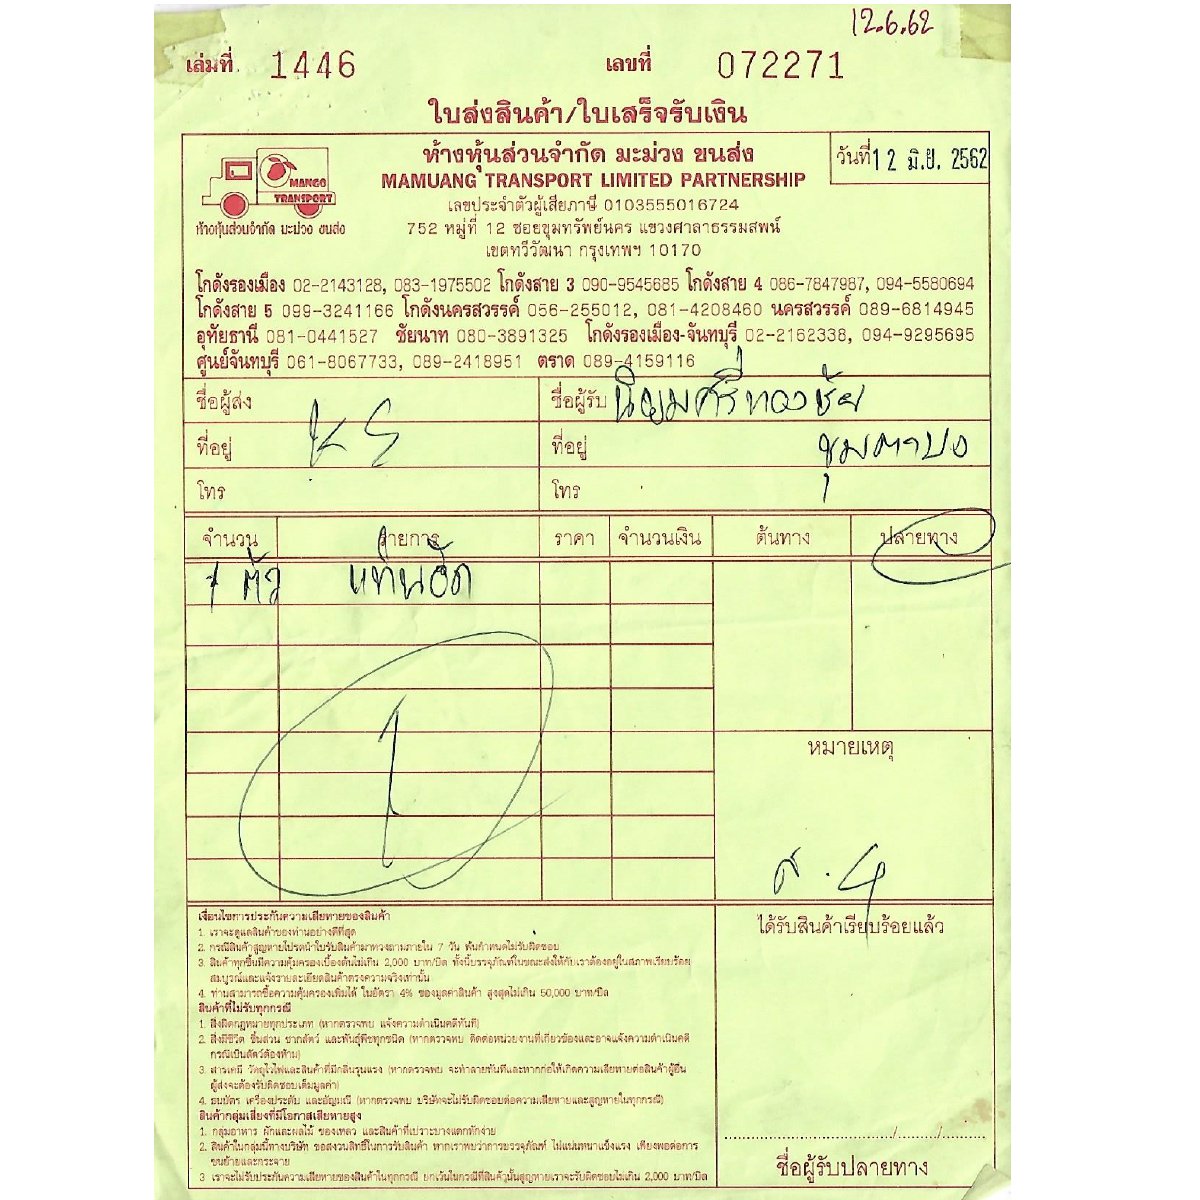 12.6.62
เล่มที่ 1446 เลขที่ 072271
ใบส่งสินค้า/ใบเสร็จรับเงิน
MANGO
TRANSPORT
ห้างหุ้นส่วนจำกัด มะม่วง ขนส่ง
ห้างหุ้นส่วนจำกัด มะม่วง ขนส่ง
วันที่ 12 มิ.ย. 2562
MAMUANG TRANSPORT LIMITED PARTNERSHIP
เลขประจำตัวผู้เสียภาษี 0103555016724
752 หมู่ที่ 12 ซอยชุมทรัพย์นคร แขวงศาลาธรรมสพน์
เขตทวีวัฒนา กรุงเทพฯ 10170
โกดังรองเมือง 02-2143128, 083-1975502 โกดังสาย 3 090-9545685 โกดังสาย 4 086-7847987, 094-5580694
โกดังสาย 5 099-3241166 โกดังนครสวรรค์ 056-255012, 081-4208460 นครสวรรค์ 089-6814945
อุทัยธานี 081-0441527 ชัยนาท 080-3891325 โกดังรองเมือง-จันทบุรี 02-2162338, 094-9295695
ศูนย์จันทบุรี 061-8067733, 089-2418951 ตราด 089-4159116
ชื่อผู้ส่ง ชื่อผู้รับ นิยมศรีทองชัย
ที่อยู่ KS ที่อยู่ ชุมตาบง
โทร โทร
จำนวน รายการ ราคา จำนวนเงิน ต้นทาง ปลายทาง
1 ตัว แท่นอัด
1
หมายเหตุ
ส.4
เงื่อนไขการประกันความเสียหายของสินค้า
1. เราจะดูแลสินค้าของท่านอย่างดีที่สุด
2. กรณีสินค้าสูญหายโปรดนำใบรับสินค้ามาทวงถามภายใน 7 วัน พ้นกำหนดไม่รับผิดชอบ
3. สินค้าทุกชิ้นมีความคุ้มครองเบื้องต้นไม่เกิน 2,000 บาท/บิล ทั้งนี้บรรจุภัณฑ์ในขณะส่งให้กับเราต้องอยู่ในสภาพเรียบร้อย
สมบูรณ์และแจ้งรายละเอียดสินค้าตรงความจริงเท่านั้น
4. ท่านสามารถซื้อความคุ้มครองเพิ่มได้ ในอัตรา 4% ของมูลค่าสินค้า สูงสุดไม่เกิน 50,000 บาท/บิล
สินค้าที่ไม่รับทุกกรณี
1. สิ่งผิดกฎหมายทุกประเภท (หากตรวจพบ แจ้งความดำเนินคดีทันที)
2. สิ่งมีชีวิต ชิ้นส่วน ซากสัตว์ และพันธุ์พืชทุกชนิด (หากตรวจพบ ติดต่อหน่วยงานที่เกี่ยวข้องและอาจแจ้งความดำเนินคดี
กรณีเป็นสัตว์ต้องห้าม)
3. สารเคมี วัตถุไวไฟและสินค้าที่มีกลิ่นรุนแรง (หากตรวจพบ จะทำลายทันทีและหากก่อให้เกิดความเสียหายต่อสินค้าผู้อื่น
ผู้ส่งจะต้องรับผิดชอบเต็มมูลค่า)
4. ธนบัตร เครื่องประดับ และอัญมณี (หากตรวจพบ บริษัทจะไม่รับผิดชอบต่อความเสียหายและสูญหายในทุกกรณี)
สินค้ากลุ่มเสี่ยงที่มีโอกาสเสียหายสูง
1. กลุ่มอาหาร ผักและผลไม้ ของเหลว และสินค้าที่เปราะบางแตกหักง่าย
2. สินค้าในกลุ่มนี้ทางบริษัท ขอสงวนสิทธิ์ในการรับสินค้า หากเราพบว่าการบรรจุภัณฑ์ ไม่แน่นหนาแข็งแรง เพียงพอต่อการ
ขนย้ายและกระจาย
3 เราจะไม่รับประกันความเสียหายของสินค้าในทุกกรณี ยกเว้นในกรณีที่สินค้านั้นสูญหายเราจะรับผิดชอบไม่เกิน 2,000 บาท/บิล
ได้รับสินค้าเรียบร้อยแล้ว
ชื่อผู้รับปลายทาง